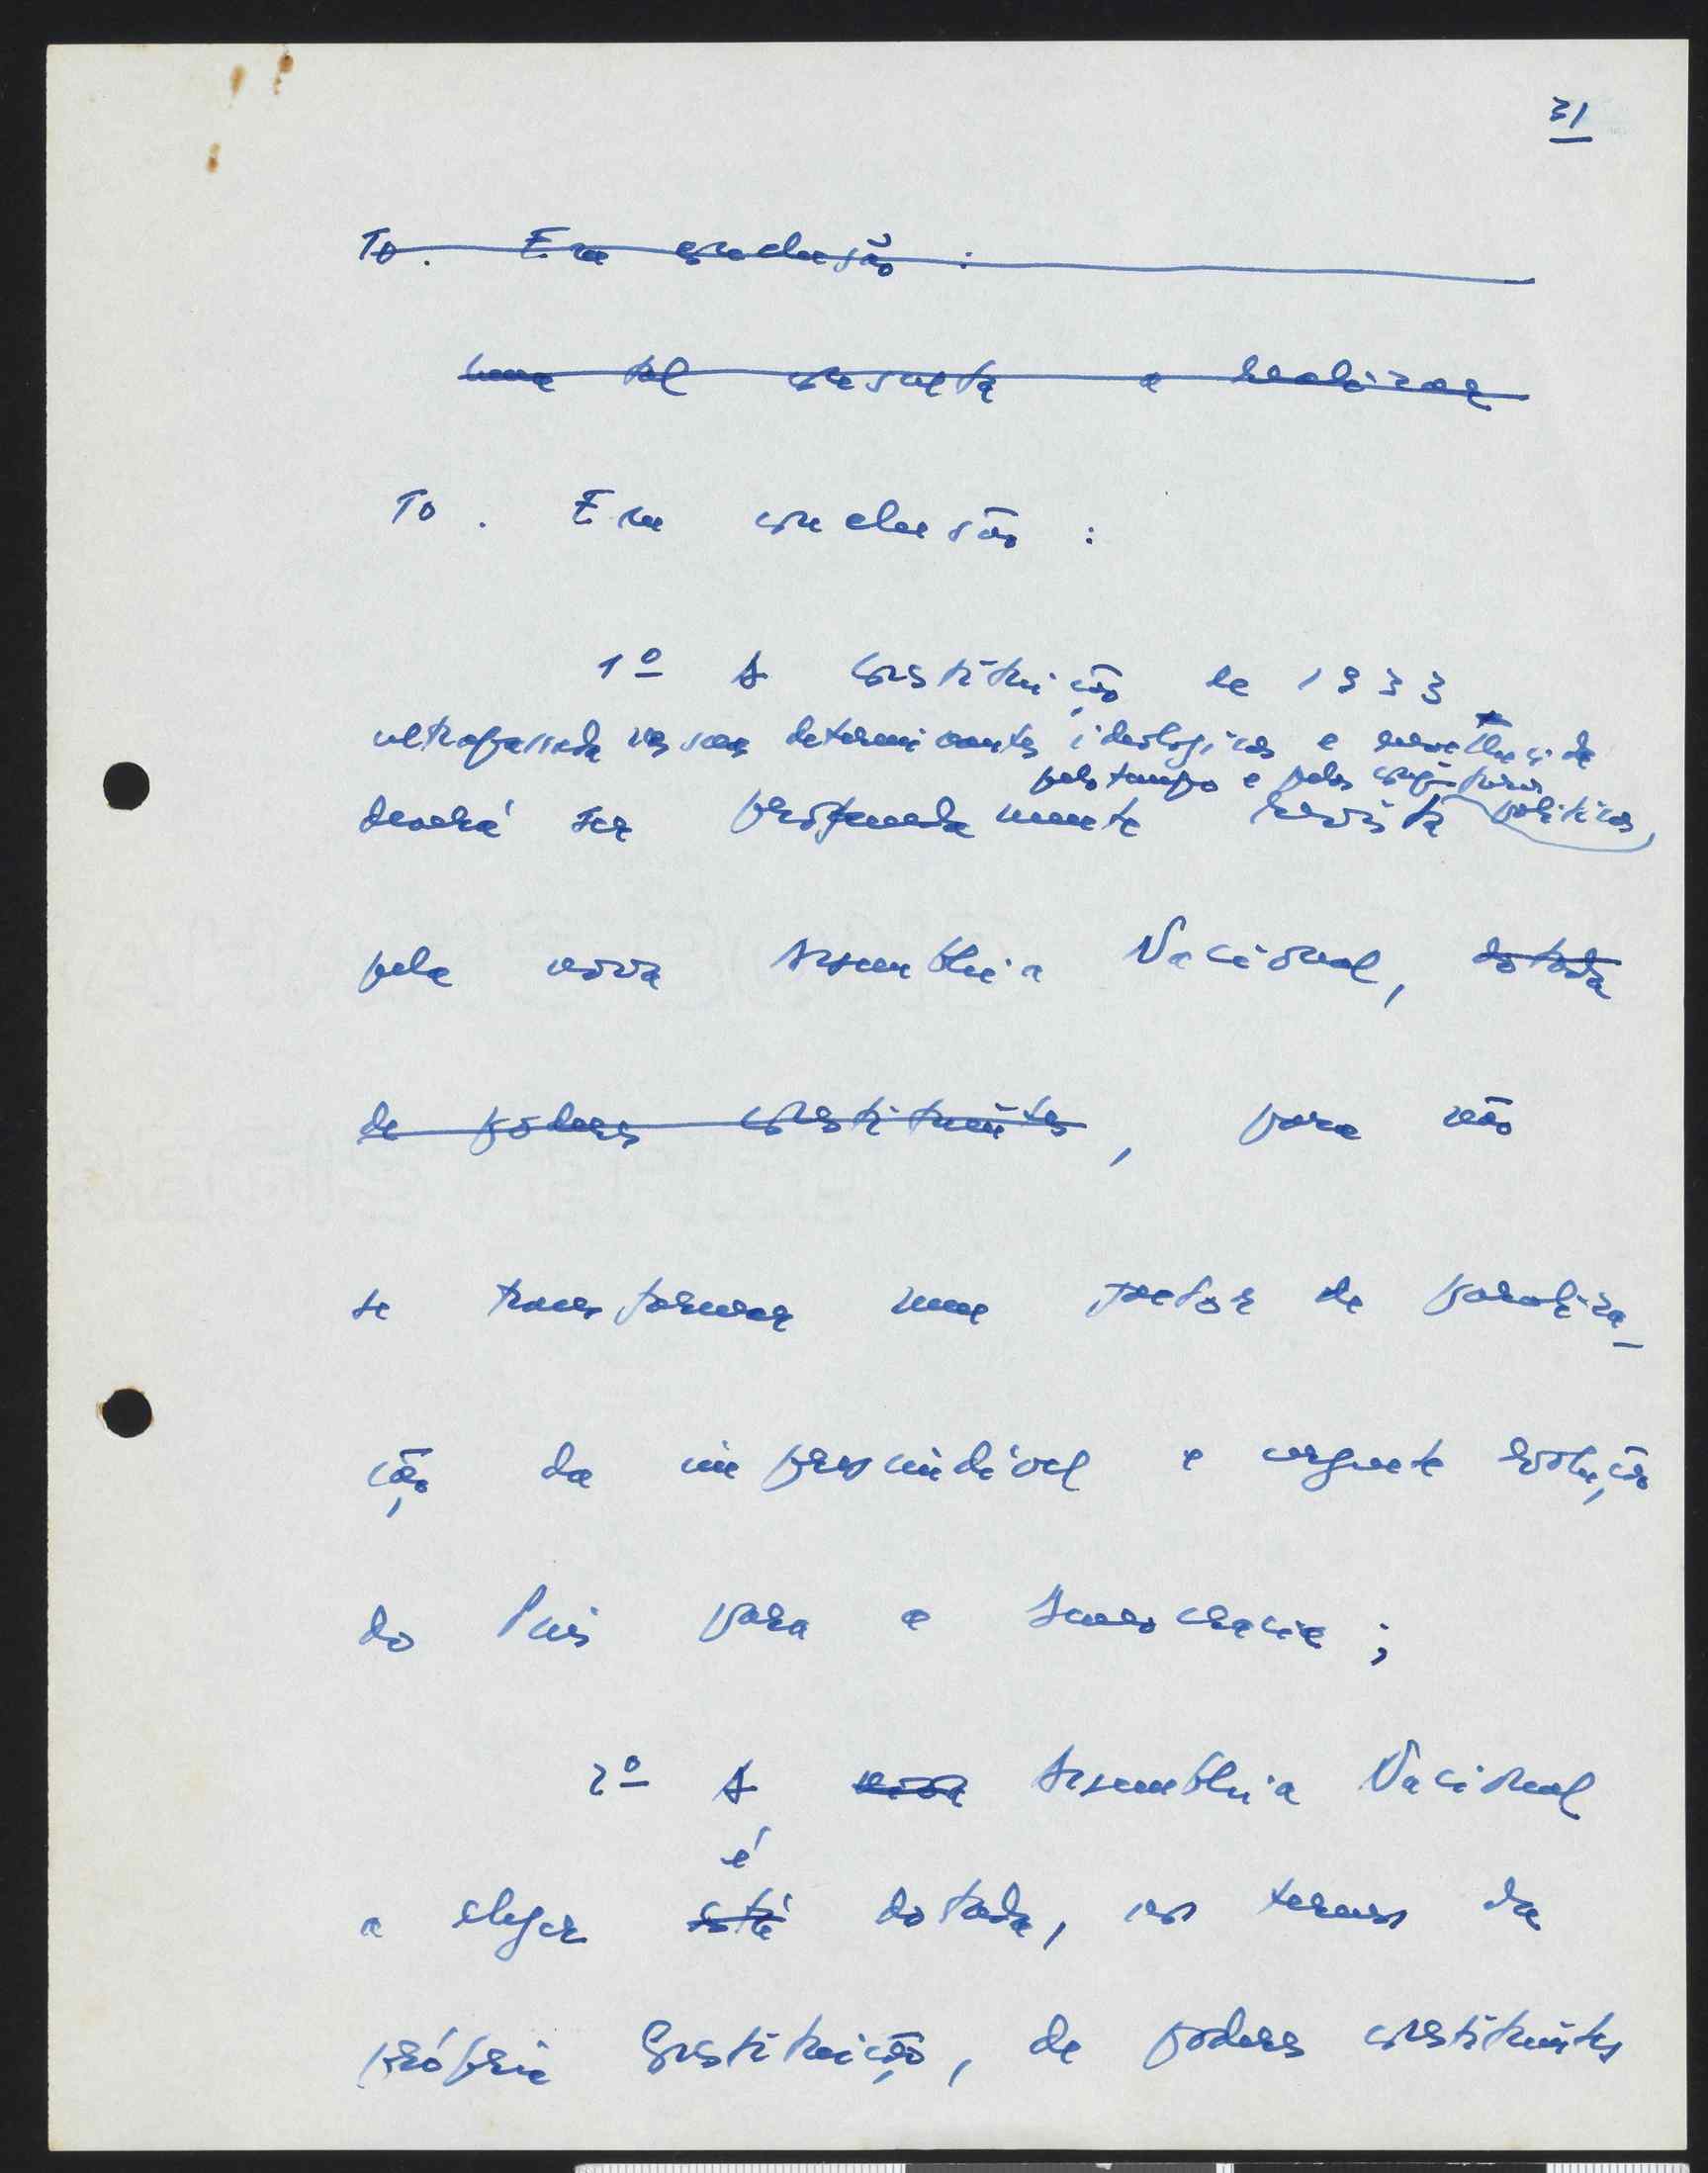 31
To. Em conclusão :
uma tal consulta a realizar
To. Em conclusão :
1º A Constituição de 1933
ultrapassada nas suas determinantes ideológicas e envelhecida
pelo tempo e pelas conjunturas
deverá ser profundamente revista políticas,
pela nova Assembleia Nacional, dotada
de poderes constituintes, para não
se transformar num factor de paraliza-
ção da imprescindível e urgente evolução
do País para a democracia ;
2º A nova Assembleia Nacional
é
a eleger está dotada, nos termos da
própria Constituição, de poderes constituintes